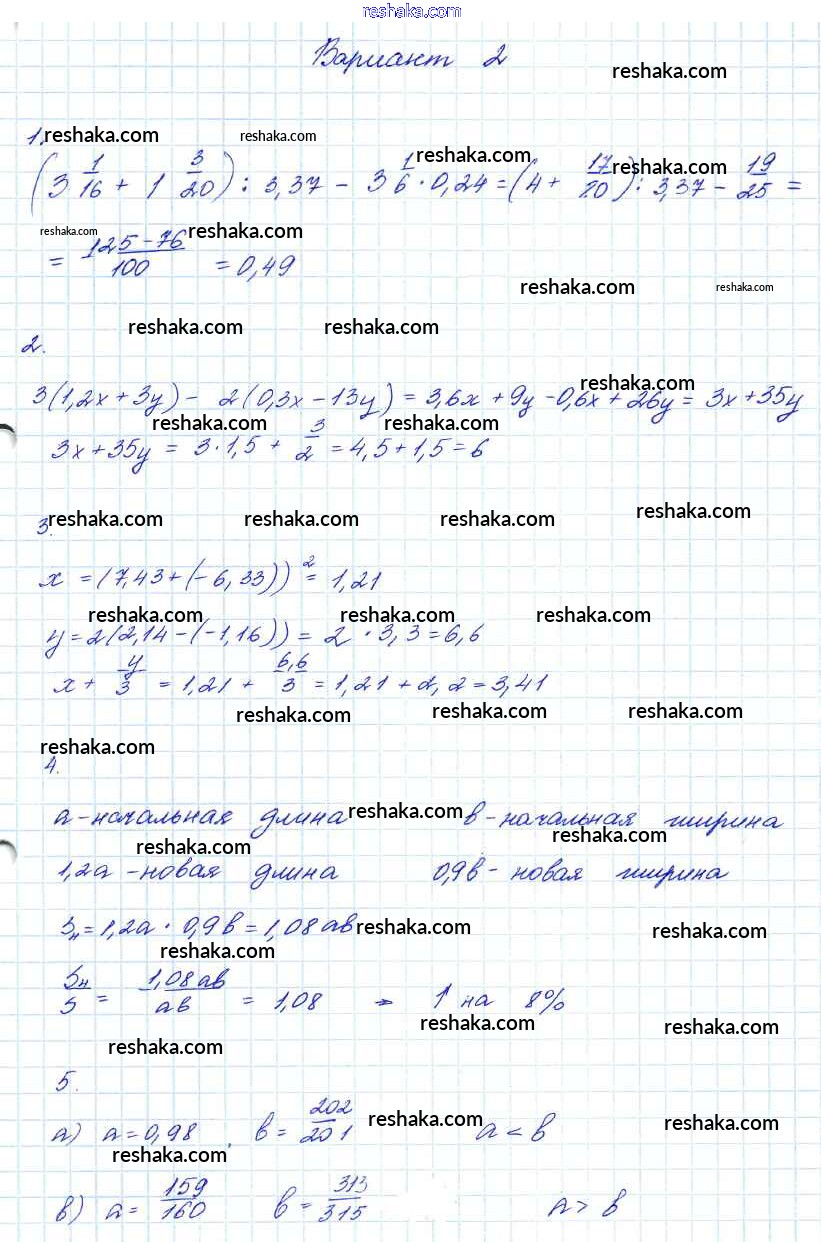 reshaka.com
Вариант 2
reshaka.com
1. reshaka.com reshaka.com reshaka.com reshaka.com
(3 1/16 + 1 3/20) : 3,37 - 3 1/6 · 0,24 = (4 + 17/20) : 3,37 - 19/25 =
reshaka.com reshaka.com
= 125-76/100 = 0,49
reshaka.com reshaka.com
reshaka.com reshaka.com
2.
reshaka.com
3(1,2x + 3y) - 2(0,3x - 13y) = 3,6x + 9y - 0,6x + 26y = 3x + 35y
reshaka.com reshaka.com
3x + 35y = 3 · 1,5 + 3/2 = 4,5 + 1,5 = 6
3. reshaka.com reshaka.com reshaka.com reshaka.com
x = (7,43 + (-6,33))² = 1,21
reshaka.com reshaka.com reshaka.com
y = 2(2,14 - (-1,16)) = 2 · 3,3 = 6,6
x + y/3 = 1,21 + 6,6/3 = 1,21 + 2,2 = 3,41
reshaka.com reshaka.com reshaka.com
reshaka.com
4.
a - начальная длина reshaka.com в - начальная ширина
reshaka.com reshaka.com
1,2a - новая длина 0,9в - новая ширина
Sн = 1,2a · 0,9в = 1,08ав reshaka.com reshaka.com
reshaka.com
Sн/S = 1,08ав/ав = 1,08 → ↑ на 8%
reshaka.com reshaka.com
reshaka.com
5.
а) a = 0,98, в = 202/201 reshaka.com a < в reshaka.com
reshaka.com
в) a = 159/160 в = 313/315 a > в